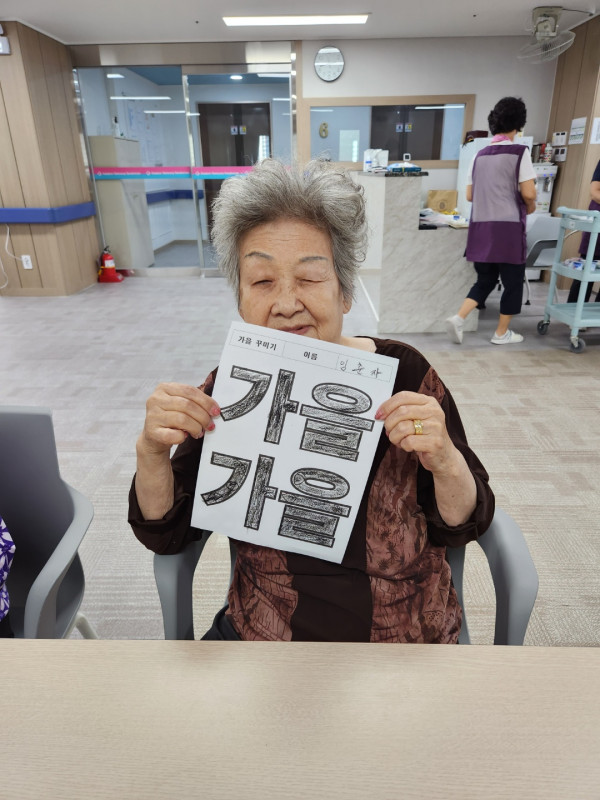 가을 꾸미기 이름 임문자
가을
가을